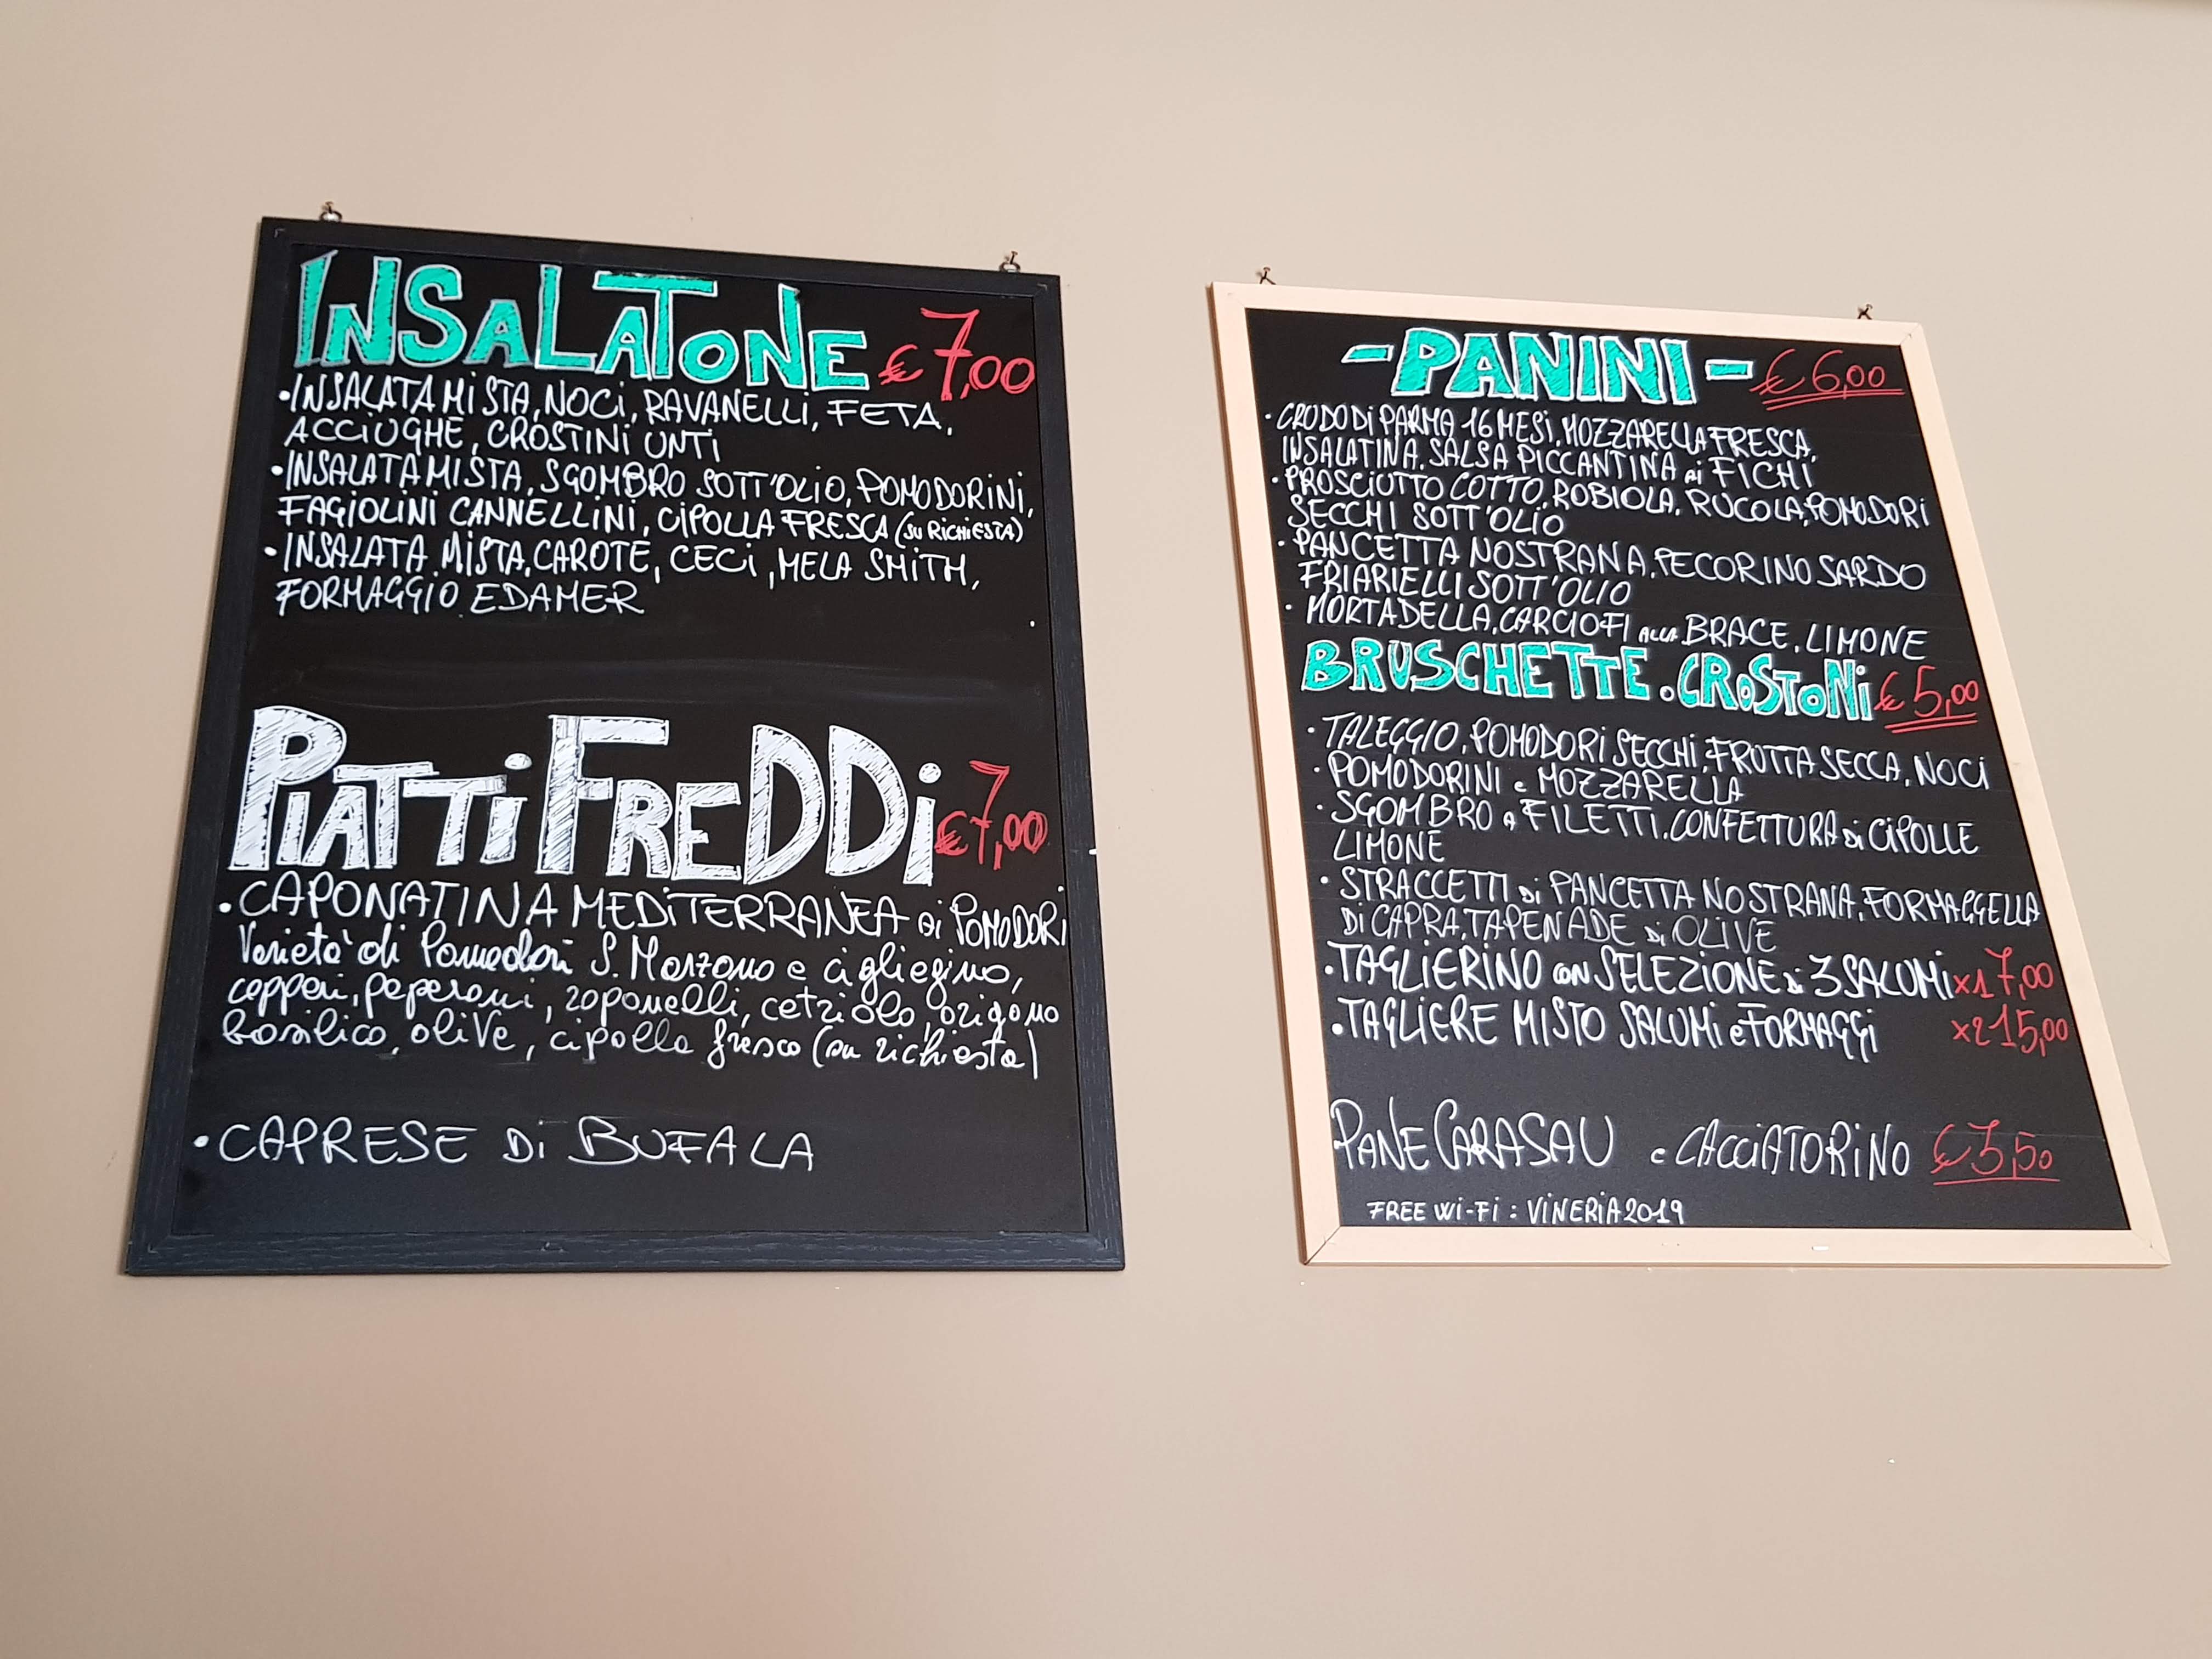 INSALATONE € 7,00
•INSALATA MISTA, NOCi, RAVANELLi, FETA,
ACCIUGHE, CROSTINI UNTI
•INSALATA MISTA, SGOMBRO SOTT'OLIO, POMODORINI,
FAGIOLINI CANNELLINI, CIPOLLA FRESCA (SU RICHIESTA)
•INSALATA MISTA, CAROTE, CECI, MELA SMITH,
FORMAGGIO EDAMER
PIATTI FREDDI 7
€7,00
•CAPONATINA MEDITERRANEA Di POMODORI
Varietà di Pomodori S. Marzano e cigliegino,
capperi, peperoni, zaponelli, cetriolo, origano
basilico, olive, cipolla fresca (su richiesta)
•CAPRESE Di BUFALA
- PANINI - € 6,00
•CRODO Di PARMA 16 MESI, MOZZARELLA FRESCA,
INSALATINA, SALSA PICCANTINA ai FICHI
•PROSCIUTTO COTTO, ROBIOLA, RUCOLA, POMODORI
SECCHI SOTT'OLIO
•PANCETTA NOSTRANA, PECORINO SARDO
FRIARIELLI SOTT'OLIO
•MORTADELLA, CARCIOFI ALLA BRACE, LIMONE
BRUSCHETTE . CROSTONi € 5,00
•TALEGGIO, POMODORI SECCHI, FROTTA SECCA, NOCI
•POMODORINI e MOZZARELLA
•SGOMBRO a FILETTI, CONFETTURA di CIPOLLE
LIMONE
•STRACCETTI di PANCETTA NOSTRANA, FORMAGGELLA
DI CAPRA, TAPENADE Di OLIVE
•TAGLIERINO CON SELEZIONE Di 3 SALUMI x1 7,00
•TAGLIERE MISTO SALUMI e FORMAGGI x2 15,00
PANE CARASAU e CACCIATORINO € 3,50
FREE Wi-Fi : VINERIA2019